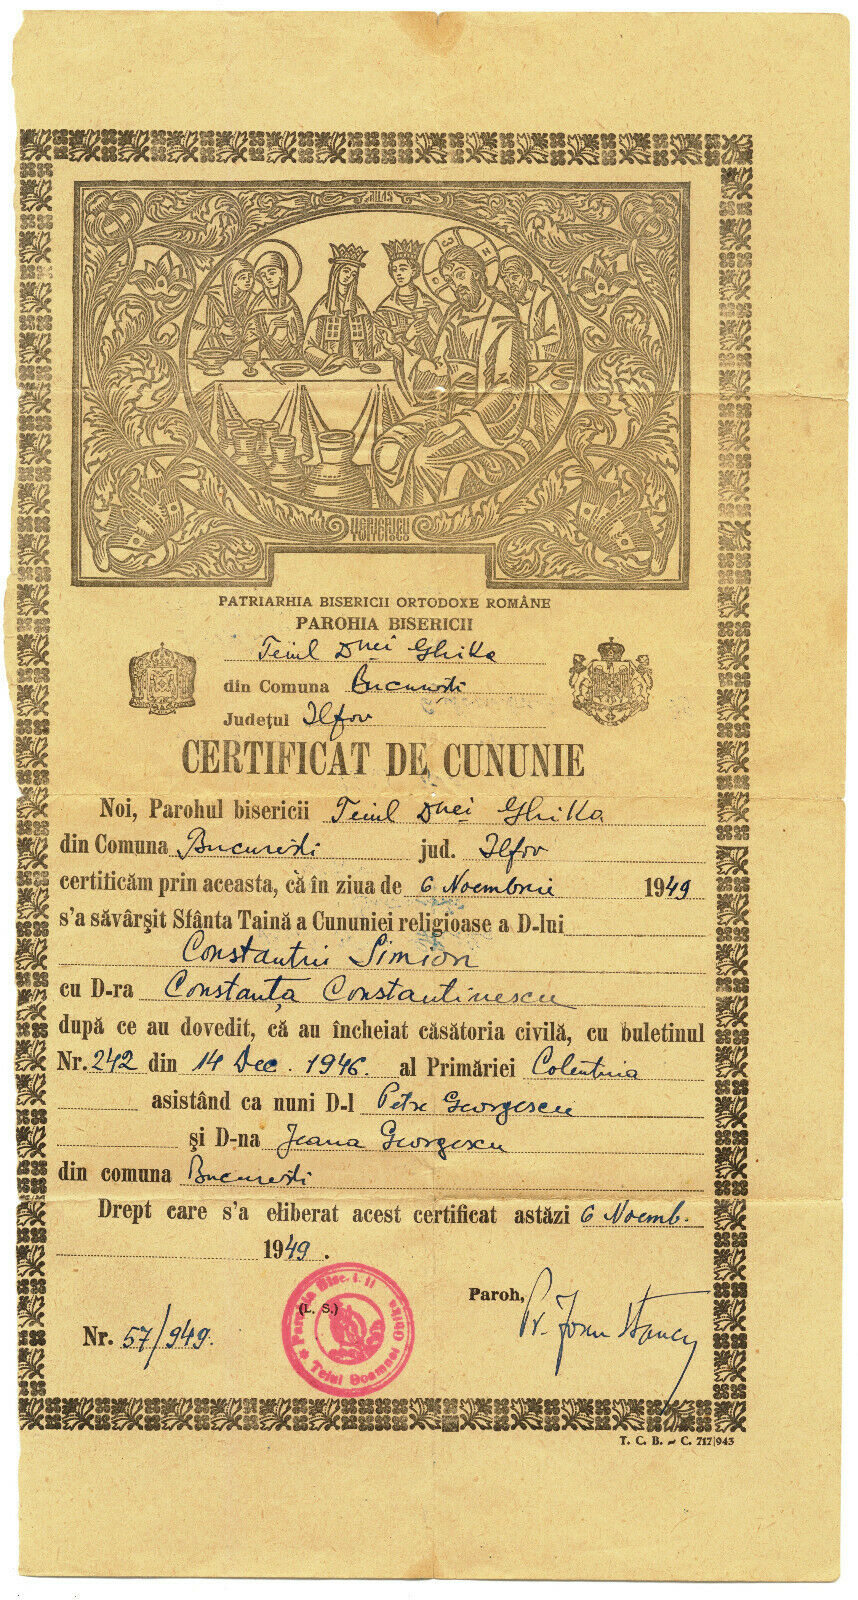 PATRIARHIA BISERICII ORTODOXE ROMÂNE
PAROHIA BISERICII
Teiul Dnei Ghika
din Comuna București
Județul Ilfov
CERTIFICAT DE CUNUNIE
Noi, Parohul bisericii Teiul Dnei Ghika
din Comuna București jud. Ilfov
certificăm prin aceasta, că în ziua de 6 Noembrie 1949
s'a săvârșit Sfânta Taină a Cununiei religioase a D-lui
Constantin Simion
cu D-ra Constanța Constantinescu
după ce au dovedit, că au încheiat căsătoria civilă, cu buletinul
Nr. 242 din 14 Dec. 1946. al Primăriei Colentina
asistând ca nuni D-l Petre Georgescu
și D-na Ioana Georgescu
din comuna București
Drept care s'a eliberat acest certificat astăzi 6 Noemb.
1949.
(L. S.)
Paroh,
Nr. 57/949.
Parohia Bisc.
Teiul Doamnei Ghika
Pr. Ioan
T. C. B. - C. 717|943